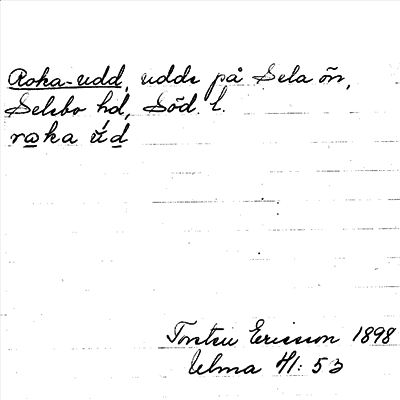 Roka-udd, udde på Sela ön,
Selebo hd, Söd. l.
roka úd
Torsten Ericsson 1898
Ulma 41:53